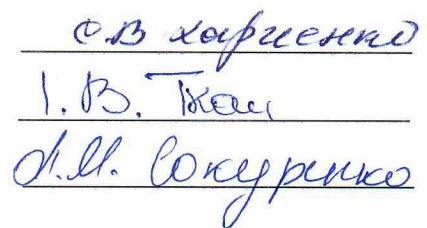 С.В Харченко
І. В. Ткач
Л.М. Сокуренко